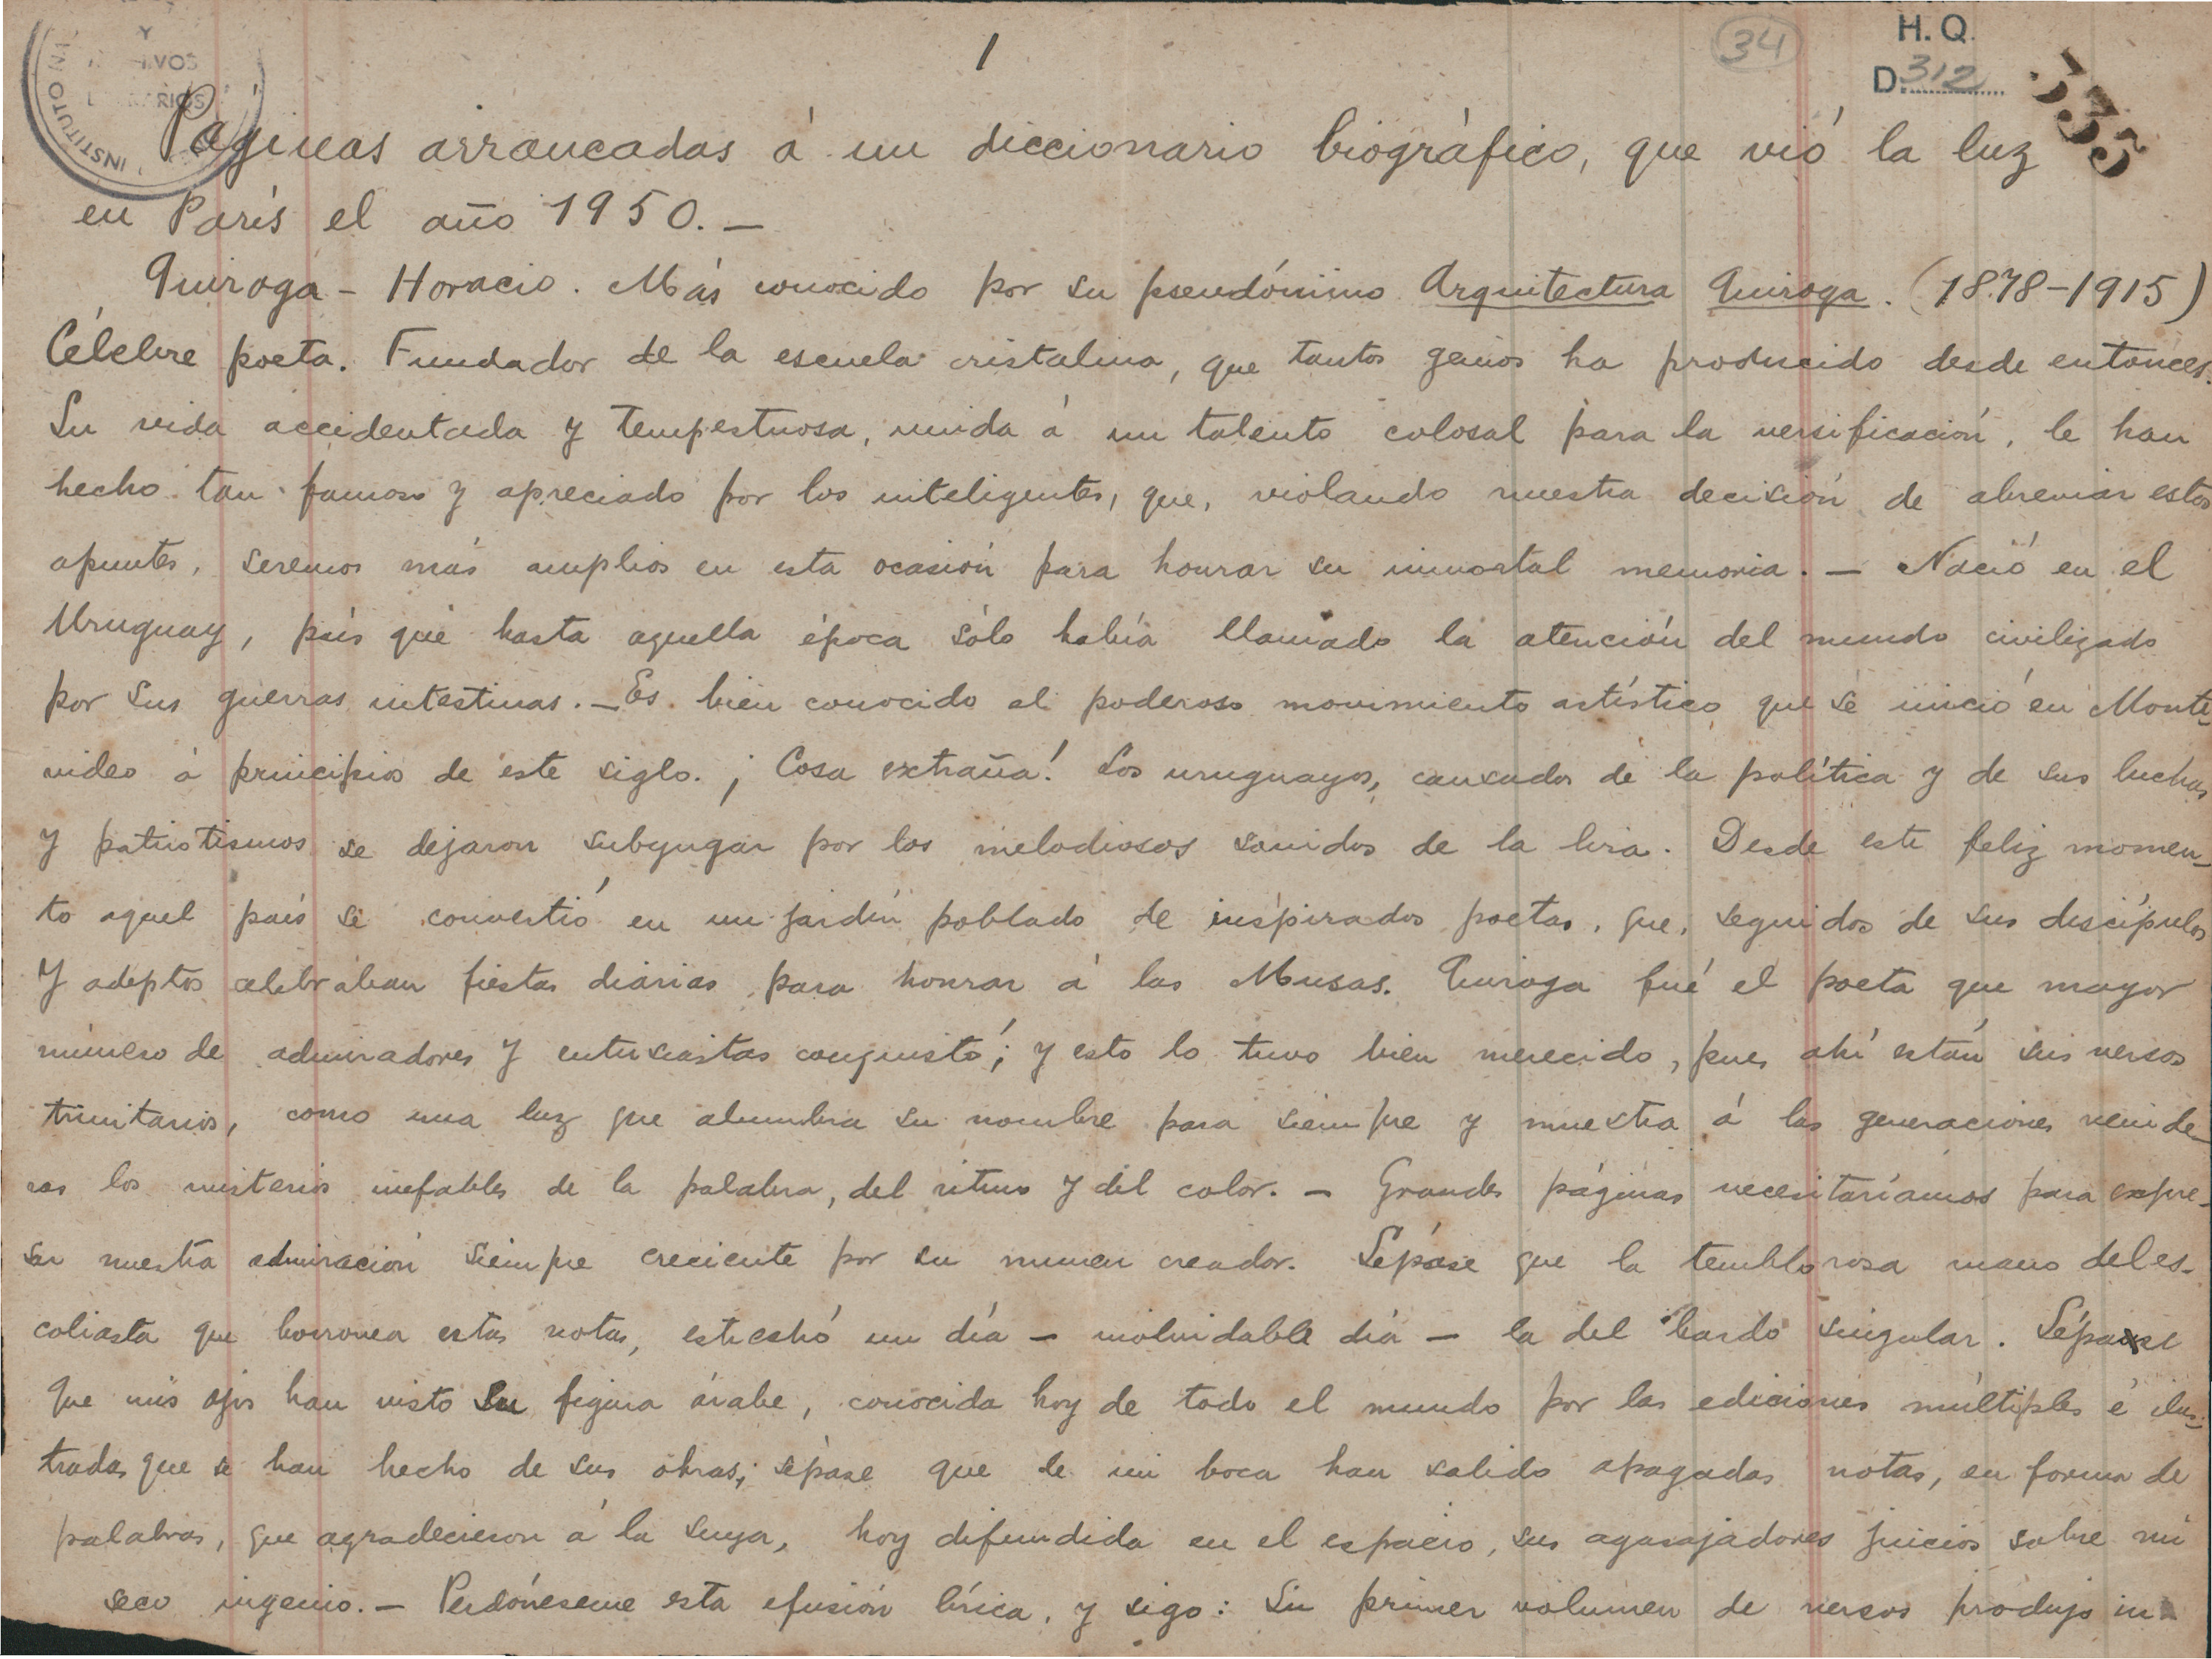 1
34
H. Q.
D. 312
535
INSTITUTO
Páginas arrancadas á un diccionario biográfico, que vió la luz
en París el año 1950. —
Quiroga - Horacio. Más conocido por su pseudónimo Arquitectura Quiroga. (1878-1915)
Célebre poeta. Fundador de la escuela cristalina, que tantos genios ha producido desde entonces.
Su vida accidentada y tempestuosa, unida á un talento colosal para la versificación, le han
hecho tan famoso y apreciado por los inteligentes, que, violando nuestra decisión de abreviar estos
apuntes, seremos más amplios en esta ocasión para honrar su inmortal memoria. — Nació en el
Uruguay, país que hasta aquella época sólo había llamado la atención del mundo civilizado
por sus guerras intestinas. — Es bien conocido el poderoso movimiento artístico que se inició en Monte-
video á principios de este siglo. ¡Cosa extraña! Los uruguayos, cansados de la política y de sus luchas
y patriotismos se dejaron subyugar por los melodiosos sonidos de la lira. Desde este feliz momen-
to aquel país se convertió en un jardín poblado de inspirados poetas, que, seguidos de sus discípulos
y adeptos celebraban fiestas diarias para honrar á las Musas. Quiroga fué el poeta que mayor
número de admiradores y entusiastas conquistó; y esto lo tuvo bien merecido, pues ahí están sus versos
trinitarios, como una luz que alumbra su nombre para siempre y muestra á las generaciones venide-
ras los misterios inefables de la palabra, del ritmo y del color. — Grandes páginas necesitaríamos para expre-
sar nuestra admiración siempre creciente por su numen creador. Sépase que la temblorosa mano del es-
coliasta que borronea estas notas, estrechó un día — inolvidable día — la del bardo singular. Sépase
que mis ojos han visto su figura árabe, conocida hoy de todo el mundo por las ediciones múltiples é ilus-
tradas que se han hecho de sus obras; sépase que de mi boca han salido apagadas notas, en forma de
palabras, que agradecieron á la suya, hoy difundida en el espacio, sus agasajadores juicios sobre mi
seco ingenio. — Perdóneseme esta efusión lírica, y sigo: Su primer volumen de versos produjo in-